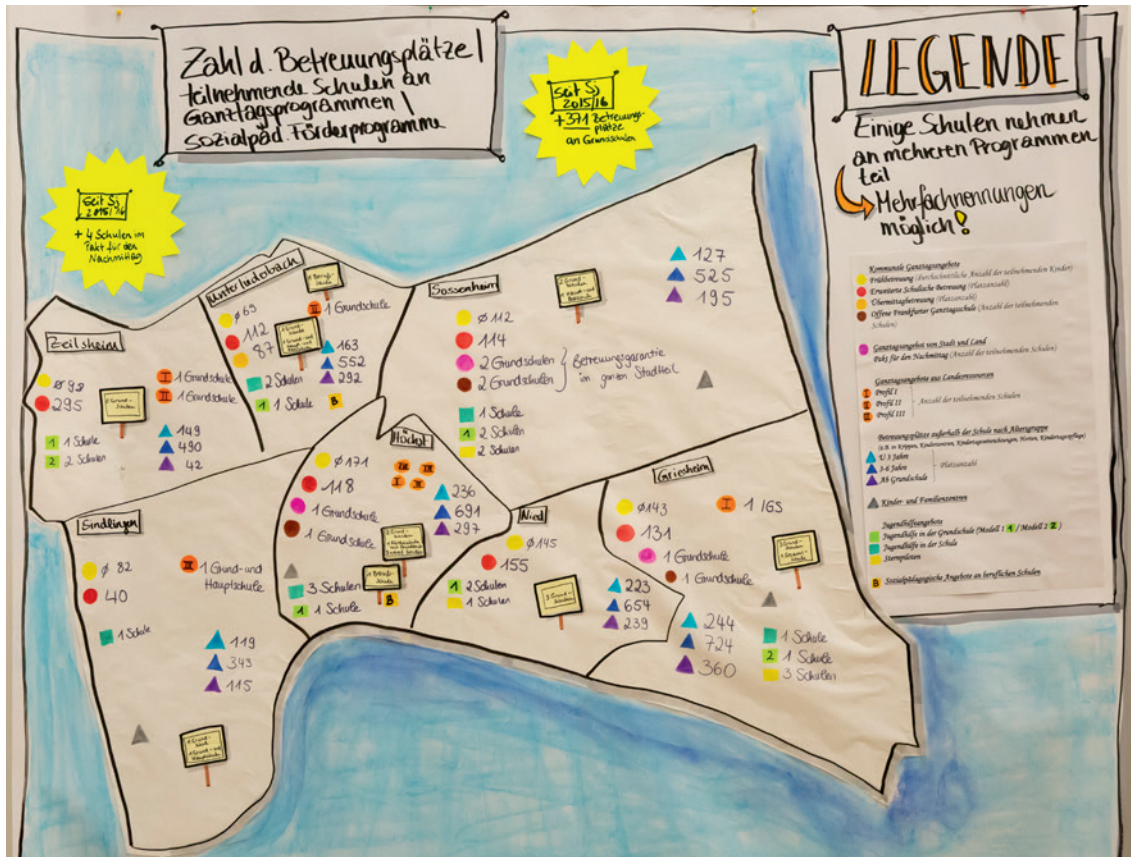 Zahl d. Betreuungsplätze/
teilnehmende Schulen an
Ganztagsprogrammen\
sozialpäd. Förderprogramme
seit Sj
2015/16
+371 Betreuungs-
plätze
an Grundschulen
seit Sj
2015/16
+ 4 Schulen im
Pakt für den
Nachmittag
LEGENDE
Einige Schulen nehmen
an mehreren Programmen
teil
Mehrfachnennungen
möglich!
Kommunale Ganztagsangebote
Frühbetreuung (durchschnittliche Anzahl der teilnehmenden Kinder)
Erweiterte Schulische Betreuung (Platzanzahl)
Übermittagbetreuung (Platzanzahl)
Offene Frankfurter Ganztagsschule (Anzahl der teilnehmenden
Schulen)
Ganztagsangebot von Stadt und Land
Pakt für den Nachmittag (Anzahl der teilnehmenden Schulen)
Ganztagsangebote aus Landesressourcen
I Profil I
II Profil II
III Profil III
Anzahl der teilnehmenden Schulen
Betreuungsplätze außerhalb der Schule nach Altersgruppe
(z.B. in Krippen, Kinderzentren, Kindertageseinrichtungen, Horten, Kindertagespflege)
U 3 Jahre
3-6 Jahre
Ab Grundschule
Platzanzahl
Kinder- und Familienzentren
Jugendhilfeangebote
Jugendhilfe in der Grundschule (Modell 1 1 / Modell 2 2)
Jugendhilfe in der Schule
Sternpiloten
B Sozialpädagogische Angebote an beruflichen Schulen
Zeilsheim
ø 98
295
2 Grund-
schulen
I 1 Grundschule
II 1 Grundschule
149
490
42
1 1 Schule
2 2 Schulen
Unterliederbach
ø 69
112
87
1 Berufs-
schule
II 1 Grundschule
163
552
292
2 Schulen
1 1 Schule
B
Sossenheim
ø 112
114
2 Grundschulen
2 Grundschulen
Betreuungsgarantie
im ganzen Stadtteil
1 Schule
1 2 Schulen
2 Schulen
2 Grund-
schulen
127
525
195
Höchst
ø 171
118
1 Grundschule
1 Grundschule
236
691
297
3 Schulen
1 1 Schule
1 Berufs-
schule
B
Sindlingen
ø 82
40
III 1 Grund- und
Hauptschule
1 Schule
119
343
115
1 Grund-
schule
1 Grund- und
Hauptschule
Nied
ø 145
155
1 2 Schulen
1 Schulen
3 Grund-
schulen
223
654
239
Griesheim
ø 143
131
1 Grundschule
1 Grundschule
I 1 IGS
244
724
360
1 Schule
2 1 Schule
3 Schulen